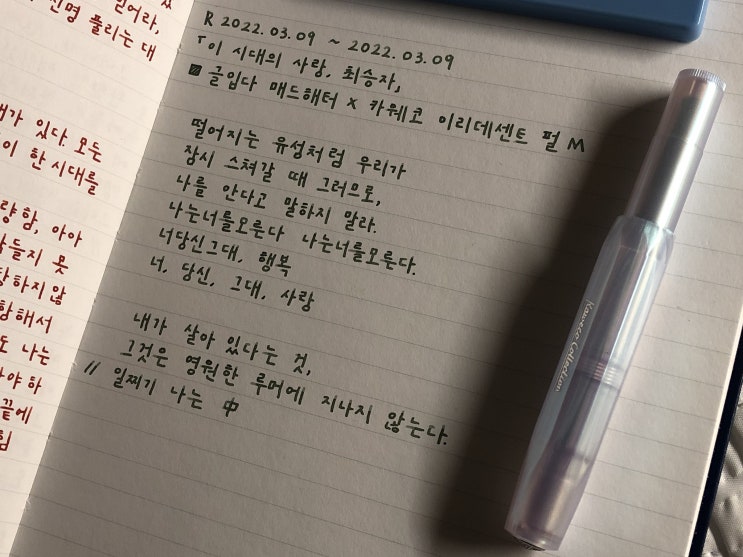 신명 풀리는 대
있다. 모든
이 한 시대를
아아
못
않
나는
하
끝에
힘
R 2022.03.09 ~ 2022.03.09
「이 시대의 사랑, 최승자」
글입다 매드해터 x 카웨코 이리데센트 펄 M
떨어지는 유성처럼 우리가
잠시 스쳐갈 때 그러므로,
나를 안다고 말하지 말라.
나는너를모른다 나는너를모른다.
너당신그대, 행복
너, 당신, 그대, 사랑
내가 살아 있다는 것,
그것은 영원한 루머에 지나지 않는다.
// 일찌기 나는 中
Kaweco Collection